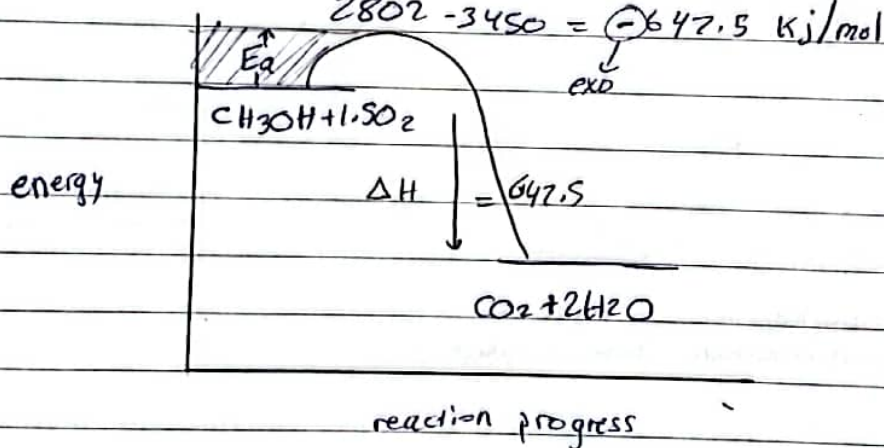 2802 - 3450 = -647.5 Kj/mol
exo
Ea
CH3OH + 1.5O2
energy
ΔH = 647.5
CO2 + 2H2O
reaction progress